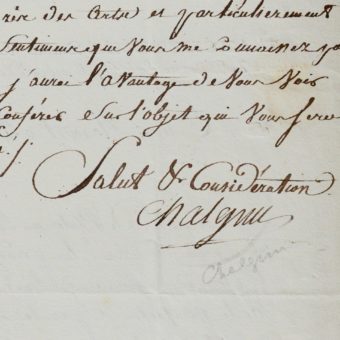 des Arts et particulierement
Sentimens que Vous me Connoissez
j'aurai l'avantage de Vous Voir
Conférer Sur l'objet qui Vous
Salut & Considération
Chalgrin
Chalgrin